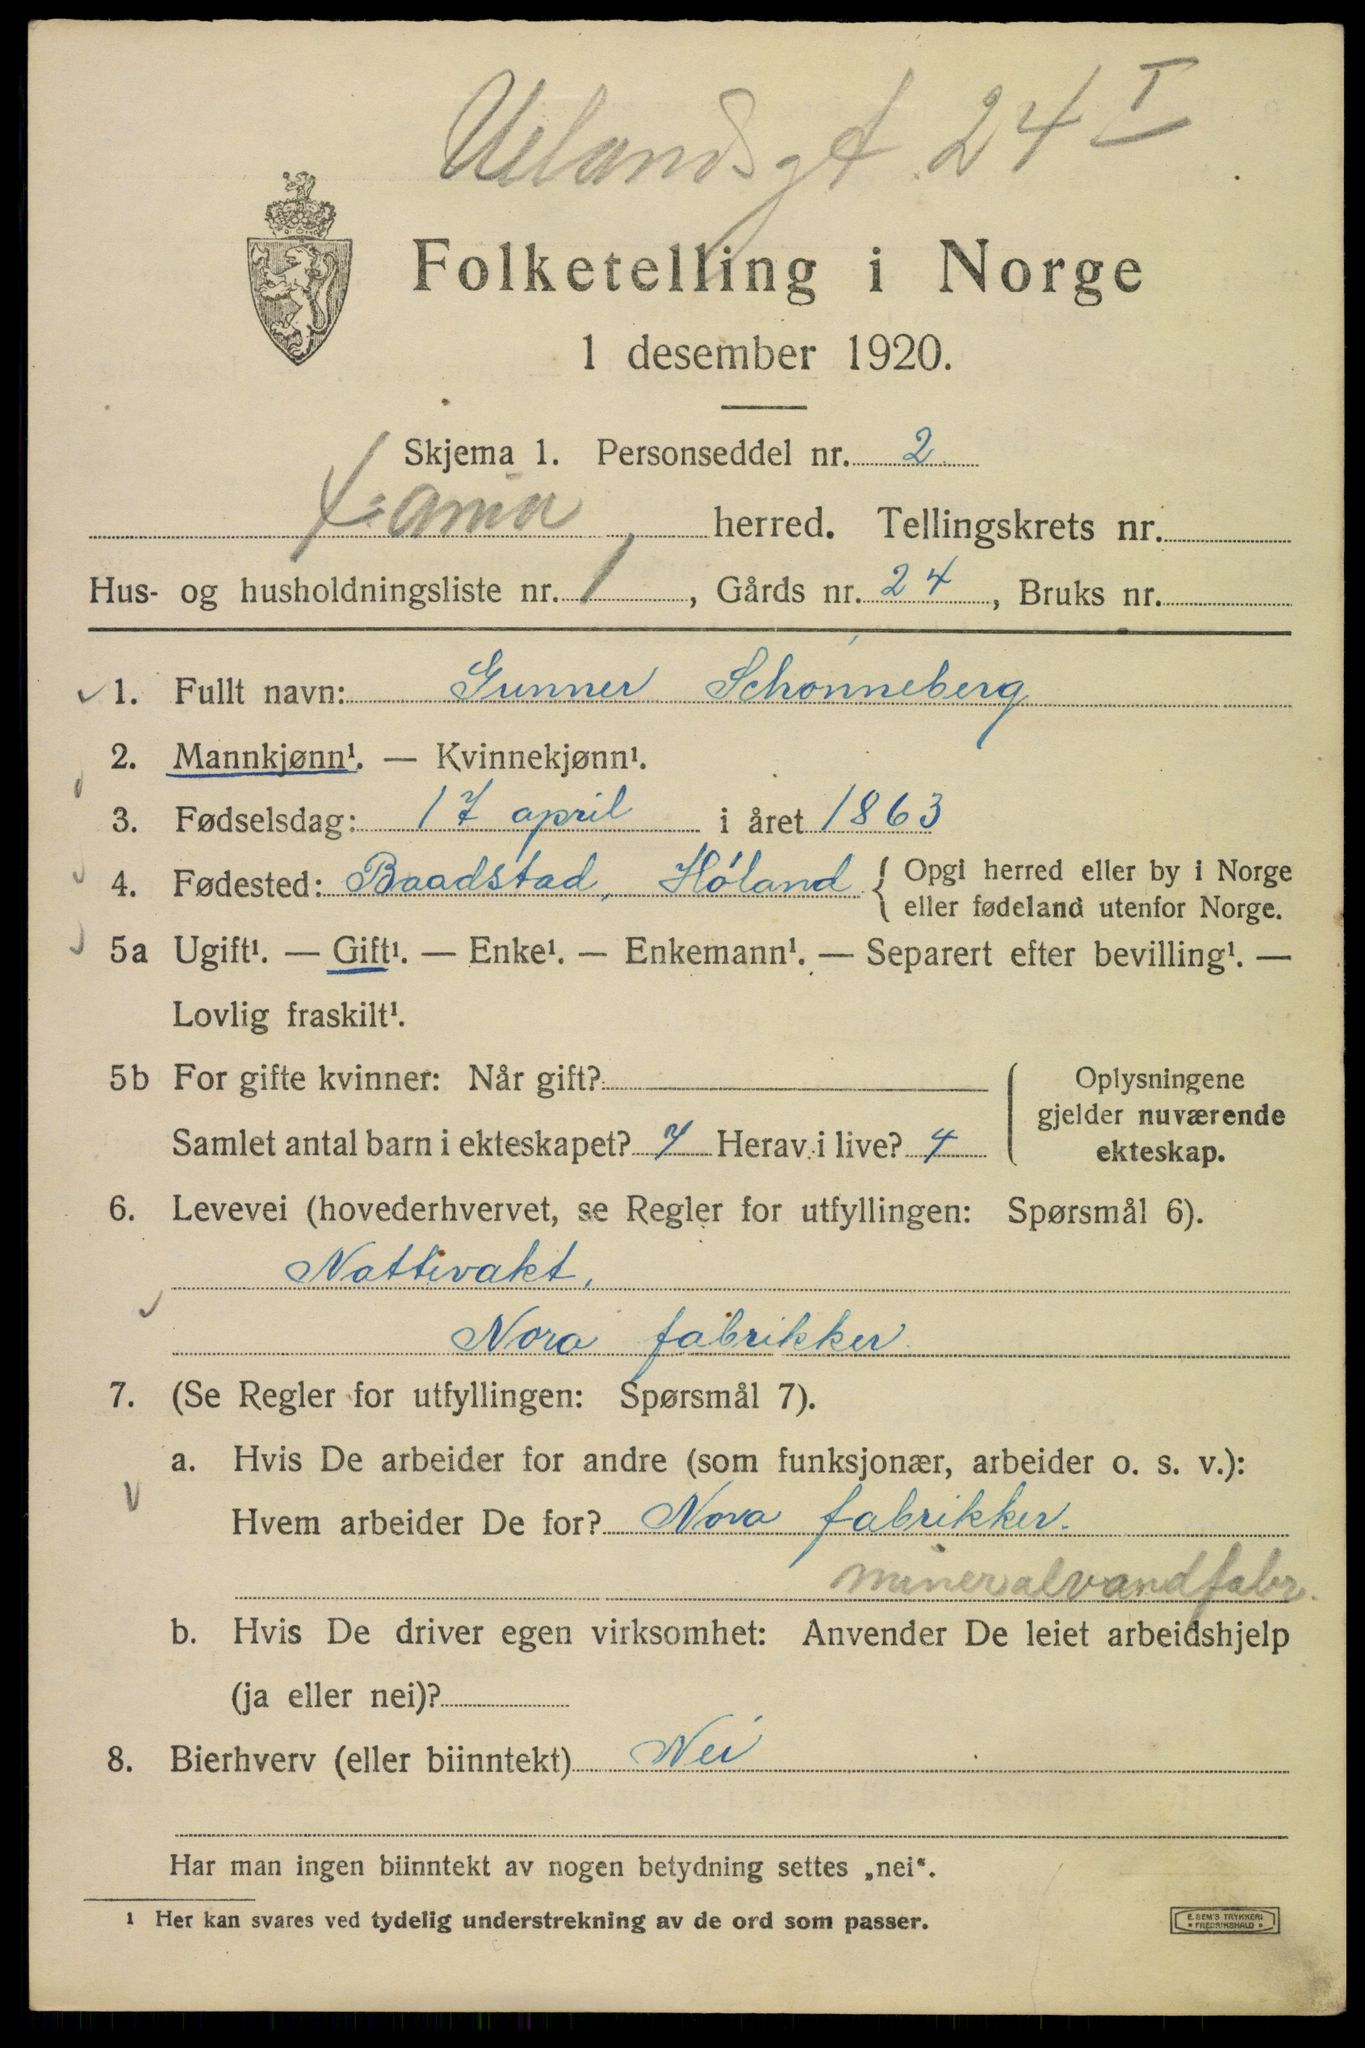 Uelandsgt 24 I
Folketelling i Norge
1 desember 1920.
Skjema 1. Personseddel nr. 2
Kr:ania herred. Tellingskrets nr.
Hus- og husholdningsliste nr. 1, Gårds nr. 24, Bruks nr.
1. Fullt navn: Gunner Schønneberg
2. Mannkjønn¹. — Kvinnekjønn¹.
3. Fødselsdag: 17 april i året 1863
4. Fødested: Baadstad, Høland { Opgi herred eller by i Norge
eller fødeland utenfor Norge.
5a Ugift¹. — Gift¹. — Enke¹. — Enkemann¹. — Separert efter bevilling¹. —
Lovlig fraskilt¹.
5b For gifte kvinner: Når gift?
Samlet antal barn i ekteskapet? 7 Herav i live? 4
Oplysningene
gjelder nuværende
ekteskap.
6. Levevei (hovederhvervet, se Regler for utfyllingen: Spørsmål 6).
Nattevakt,
Nora fabrikker.
7. (Se Regler for utfyllingen: Spørsmål 7).
a. Hvis De arbeider for andre (som funksjonær, arbeider o. s. v.):
Hvem arbeider De for? Nora fabrikker.
mineralvandfabr.
b. Hvis De driver egen virksomhet: Anvender De leiet arbeidshjelp
(ja eller nei)?
8. Bierhverv (eller biinntekt) Nei
Har man ingen biinntekt av nogen betydning settes „nei“.
¹ Her kan svares ved tydelig understrekning av de ord som passer.
E. SEM'S TRYKKERI
* FREDRIKSHALD *